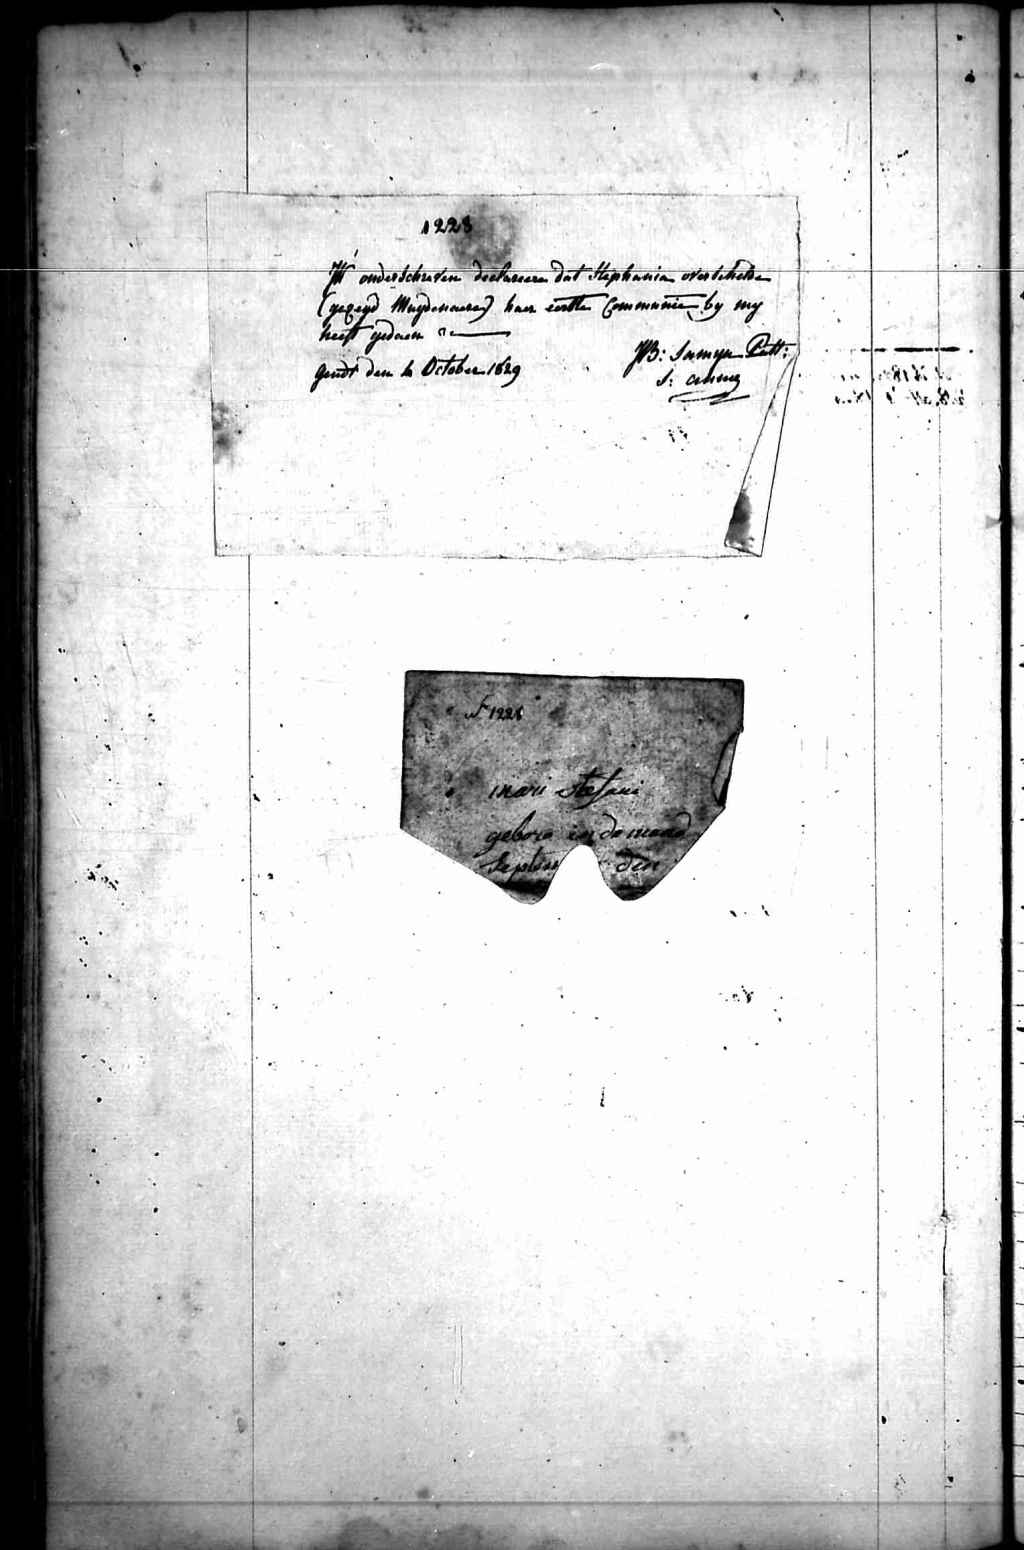 1228
Wÿ onderschreven declareeren dat Stephania overschelde
(gezeyd Muydenaere) haer eerste Communie by my
heeft gedaen
gendt den 2 October 1829
JB: Samyn Past:
S: Annæ
N 1228
mari Stefani
geboren in de maend
Septem den